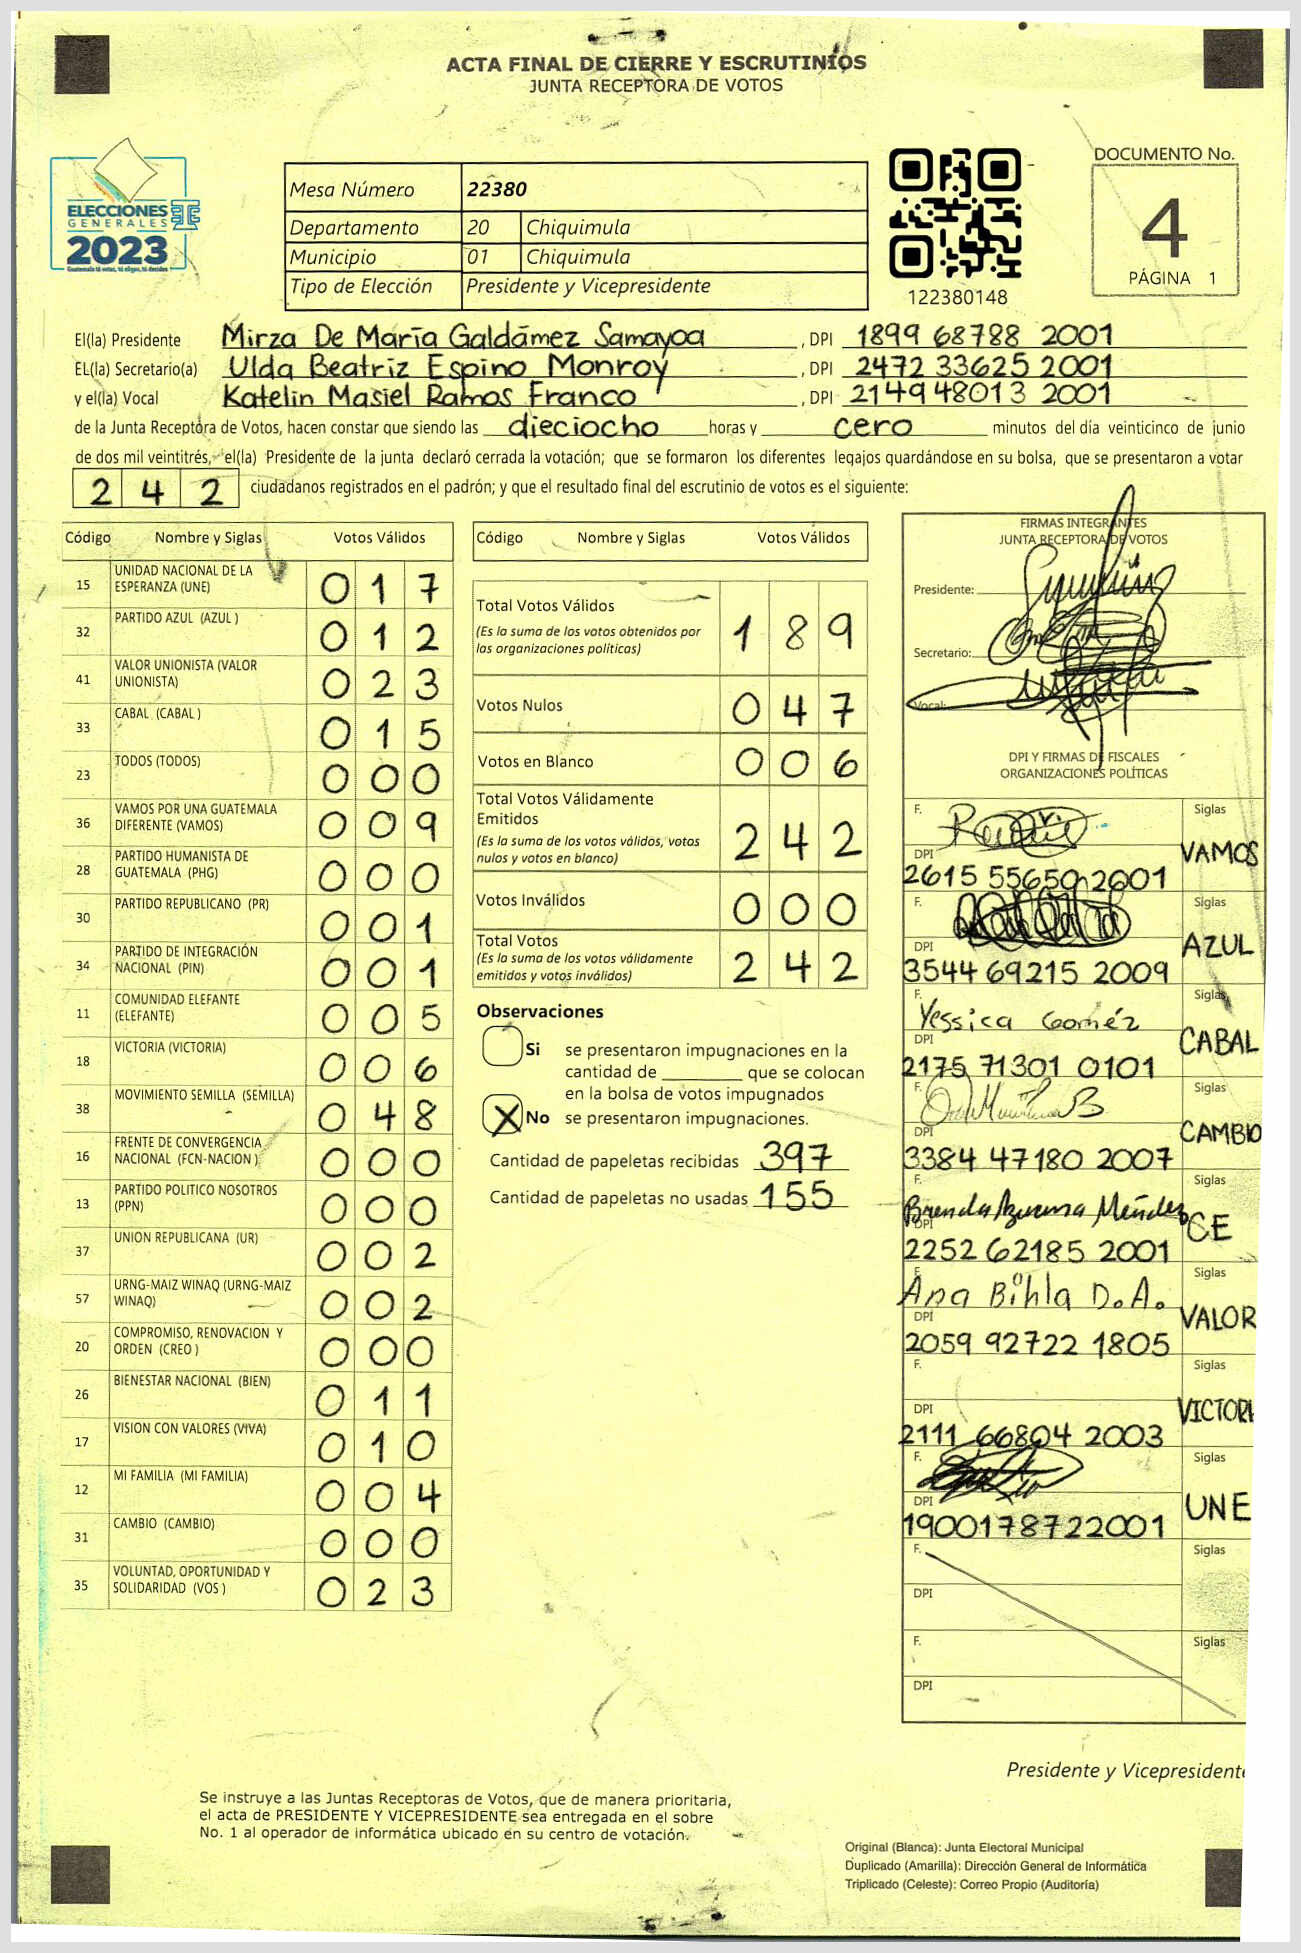 ACTA FINAL DE CIERRE Y ESCRUTINIOS
JUNTA RECEPTORA DE VOTOS
ELECCIONES
GENERALES
2023
Guatemala tú votas, tú eliges, tú decides
Mesa Número 22380
Departamento 20 Chiquimula
Municipio 01 Chiquimula
Tipo de Elección Presidente y Vicepresidente
122380148
DOCUMENTO No.
4
PÁGINA 1
El(la) Presidente Mirza De María Galdámez Samayoa , DPI 1899 68788 2001
EL(la) Secretario(a) Ulda Beatriz Espino Monroy , DPI 2472 33625 2001
y el(la) Vocal Katelin Masiel Ramos Franco , DPI 2149 48013 2001
de la Junta Receptora de Votos, hacen constar que siendo las dieciocho horas y cero minutos del día veinticinco de junio
de dos mil veintitrés, el(la) Presidente de la junta declaró cerrada la votación; que se formaron los diferentes legajos guardándose en su bolsa, que se presentaron a votar
2 4 2 ciudadanos registrados en el padrón; y que el resultado final del escrutinio de votos es el siguiente:
Código Nombre y Siglas Votos Válidos
15 UNIDAD NACIONAL DE LA ESPERANZA (UNE) 0 1 7
32 PARTIDO AZUL (AZUL ) 0 1 2
41 VALOR UNIONISTA (VALOR UNIONISTA) 0 2 3
33 CABAL (CABAL ) 0 1 5
23 TODOS (TODOS) 0 0 0
36 VAMOS POR UNA GUATEMALA DIFERENTE (VAMOS) 0 0 9
28 PARTIDO HUMANISTA DE GUATEMALA (PHG) 0 0 0
30 PARTIDO REPUBLICANO (PR) 0 0 1
34 PARTIDO DE INTEGRACIÓN NACIONAL (PIN) 0 0 1
11 COMUNIDAD ELEFANTE (ELEFANTE) 0 0 5
18 VICTORIA (VICTORIA) 0 0 6
38 MOVIMIENTO SEMILLA (SEMILLA) 0 4 8
16 FRENTE DE CONVERGENCIA NACIONAL (FCN-NACION ) 0 0 0
13 PARTIDO POLITICO NOSOTROS (PPN) 0 0 0
37 UNION REPUBLICANA (UR) 0 0 2
57 URNG-MAIZ WINAQ (URNG-MAIZ WINAQ) 0 0 2
20 COMPROMISO, RENOVACION Y ORDEN (CREO ) 0 0 0
26 BIENESTAR NACIONAL (BIEN) 0 1 1
17 VISION CON VALORES (VIVA) 0 1 0
12 MI FAMILIA (MI FAMILIA) 0 0 4
31 CAMBIO (CAMBIO) 0 0 0
35 VOLUNTAD, OPORTUNIDAD Y SOLIDARIDAD (VOS ) 0 2 3
Código Nombre y Siglas Votos Válidos
Total Votos Válidos 1 8 9
(Es la suma de los votos obtenidos por
las organizaciones políticas)
Votos Nulos 0 4 7
Votos en Blanco 0 0 6
Total Votos Válidamente
Emitidos 2 4 2
(Es la suma de los votos válidos, votos
nulos y votos en blanco)
Votos Inválidos 0 0 0
Total Votos 2 4 2
(Es la suma de los votos válidamente
emitidos y votos inválidos)
Observaciones
Si se presentaron impugnaciones en la
cantidad de ________ que se colocan
en la bolsa de votos impugnados
X No se presentaron impugnaciones.
Cantidad de papeletas recibidas 397
Cantidad de papeletas no usadas 155
FIRMAS INTEGRANTES
JUNTA RECEPTORA DE VOTOS
Presidente:
Secretario:
Vocal:
DPI Y FIRMAS DE FISCALES
ORGANIZACIONES POLÍTICAS
F. Siglas
DPI VAMOS
2615 55650 2001
F. Siglas
DPI AZUL
3544 69215 2009
F. Siglas
Yessica Goméz
DPI CABAL
2175 71301 0101
F. Siglas
DPI CAMBIO
3384 47180 2007
F. Siglas
Brenda Azucena Méndez
DPI CE
2252 62185 2001
F. Siglas
Ana Bihla D.A.
DPI VALOR
2059 92722 1805
F. Siglas
DPI VICTORI
2111 66804 2003
F. Siglas
DPI UNE
1900178722001
F. Siglas
DPI
F. Siglas
DPI
Presidente y Vicepresidente
Se instruye a las Juntas Receptoras de Votos, que de manera prioritaria,
el acta de PRESIDENTE Y VICEPRESIDENTE sea entregada en el sobre
No. 1 al operador de informática ubicado en su centro de votación.
Original (Blanca): Junta Electoral Municipal
Duplicado (Amarilla): Dirección General de Informática
Triplicado (Celeste): Correo Propio (Auditoría)